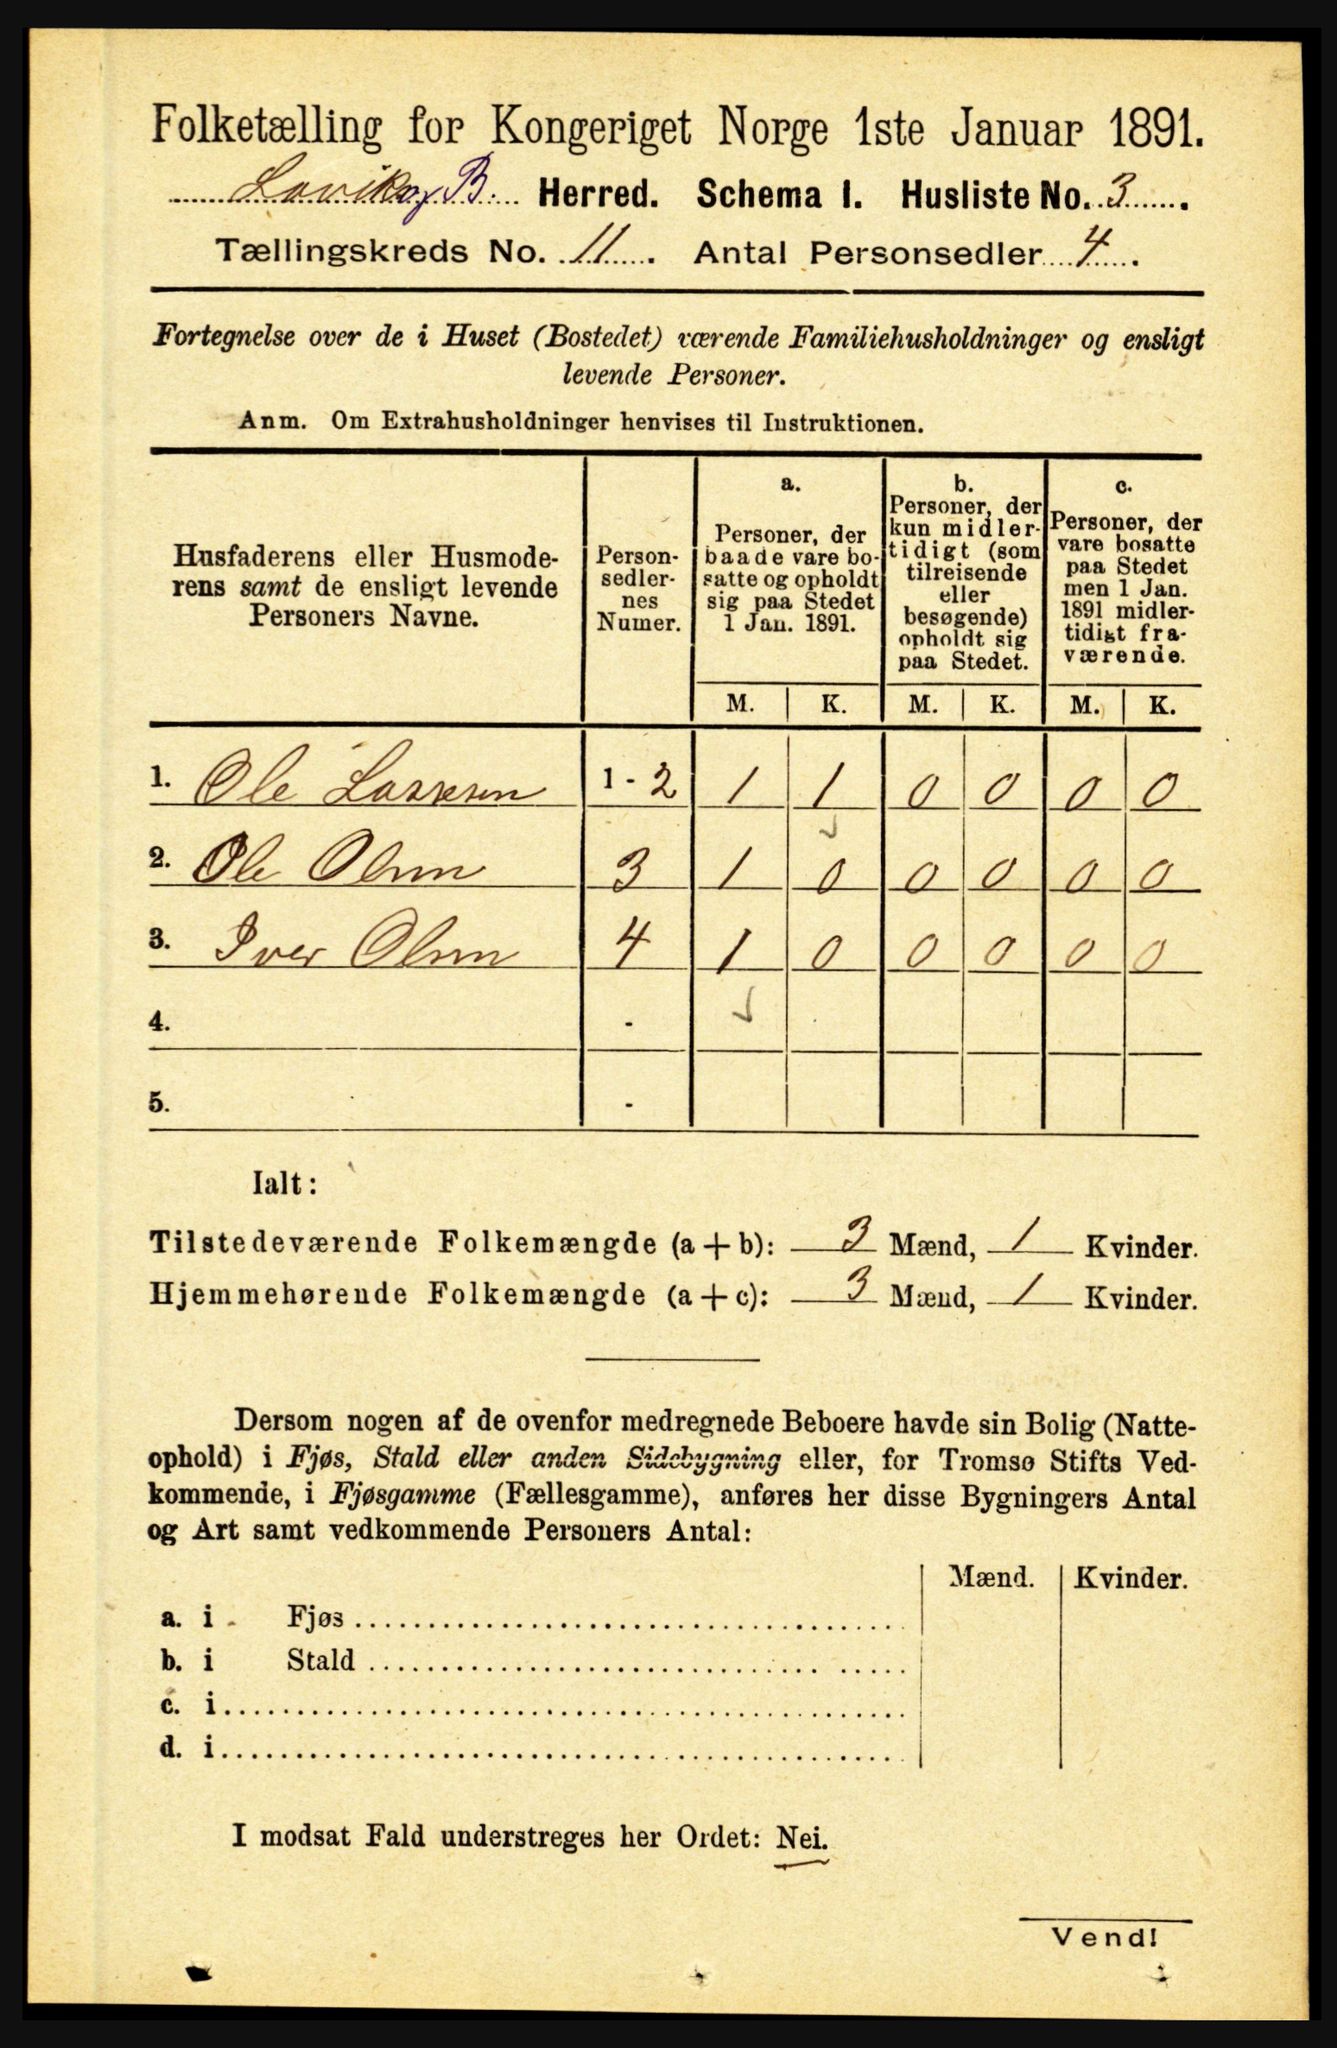 Folketælling for Kongeriget Norge 1ste Januar 1891.
Lavik og B. Herred. Schema I. Husliste No. 3.
Tællingskreds No. 11. Antal Personsedler 4.
Fortegnelse over de i Huset (Bostedet) værende Familiehusholdninger og ensligt
levende Personer.
Anm. Om Extrahusholdninger henvises til Instruktionen.
Husfaderens eller Husmode-
rens samt de ensligt levende
Personers Navne.
Person-
sedler-
nes
Numer.
a.
Personer, der
baade vare bo-
satte og opholdt
sig paa Stedet
1 Jan. 1891.
b.
Personer, der
kun midler-
tidigt (som
tilreisende
eller
besøgende)
opholdt sig
paa Stedet.
c.
Personer, der
vare bosatte
paa Stedet
men 1 Jan.
1891 midler-
tidigt fra-
værende.
M. K. M. K. M. K.
1. Ole Lassesen 1 - 2 1 1 0 0 0 0
2. Ole Olsen 3 1 0 0 0 0 0
3. Iver Olsen 4 1 0 0 0 0 0
4. -
5. -
Ialt:
Tilstedeværende Folkemængde (a + b): 3 Mænd, 1 Kvinder.
Hjemmehørende Folkemængde (a + c): 3 Mænd, 1 Kvinder.
Dersom nogen af de ovenfor medregnede Beboere havde sin Bolig (Natte-
ophold) i Fjøs, Stald eller anden Sidebygning eller, for Tromsø Stifts Ved-
kommende, i Fjøsgamme (Fællesgamme), anføres her disse Bygningers Antal
og Art samt vedkommende Personers Antal:
Mænd. Kvinder.
a. i Fjøs
b. i Stald
c. i
d. i
I modsat Fald understreges her Ordet: Nei.
Vend!